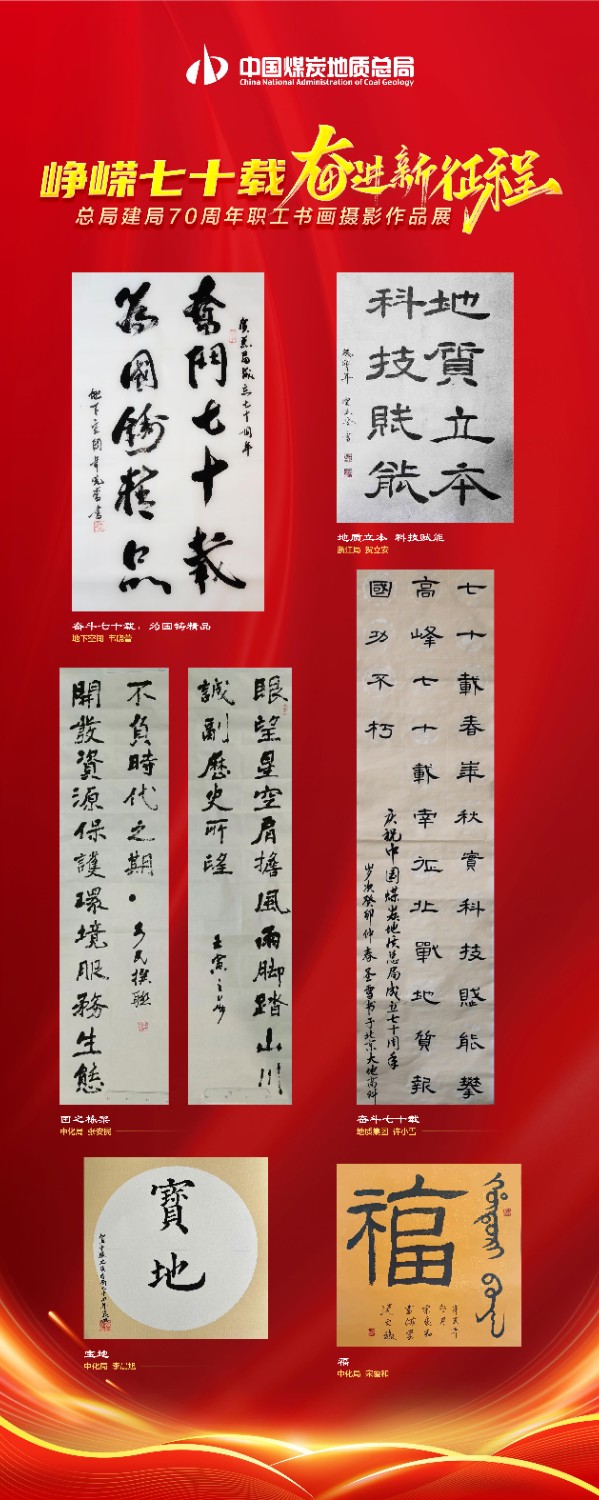 中国煤炭地质总局
China National Administration of Coal Geology
峥嵘七十载 奋进新征程
总局建局70周年职工书画摄影作品展
贺总局成立七十周年
奮鬥七十載
為國鑄精品
地質立本
科技賦能
奋斗七十载,为国铸精品
地下空间
地质立本 科技赋能
浙江局 贺立安
七十載春華秋實科技賦能攀
高峰七十載南征北戰地質報
國功不朽
庆祝中国煤炭地质总局成立七十周年
岁次癸卯仲春 圣雪书于北京大地高科
眼望星空肩擔風雨腳踏山川
誠副歷史所望
不負時代之期
開發資源保護環境服務生態
国之栋梁
中化局 张安民
奋斗七十载
地质集团 许小雪
寶地
福
宝地
中化局
福
中化局